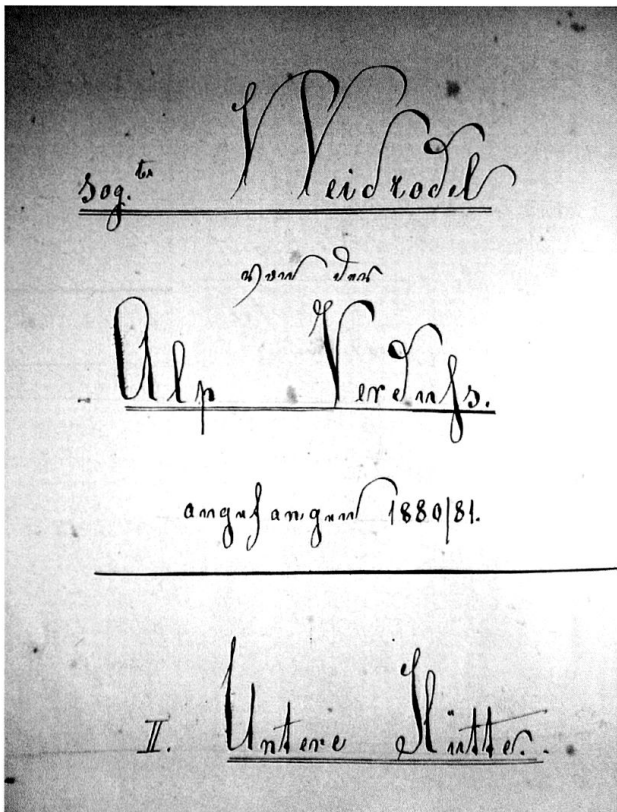 sog.tr Weidrodel
von der
Alp Verduſs.
angefangen 1880/81.
II. Untere Hütte.